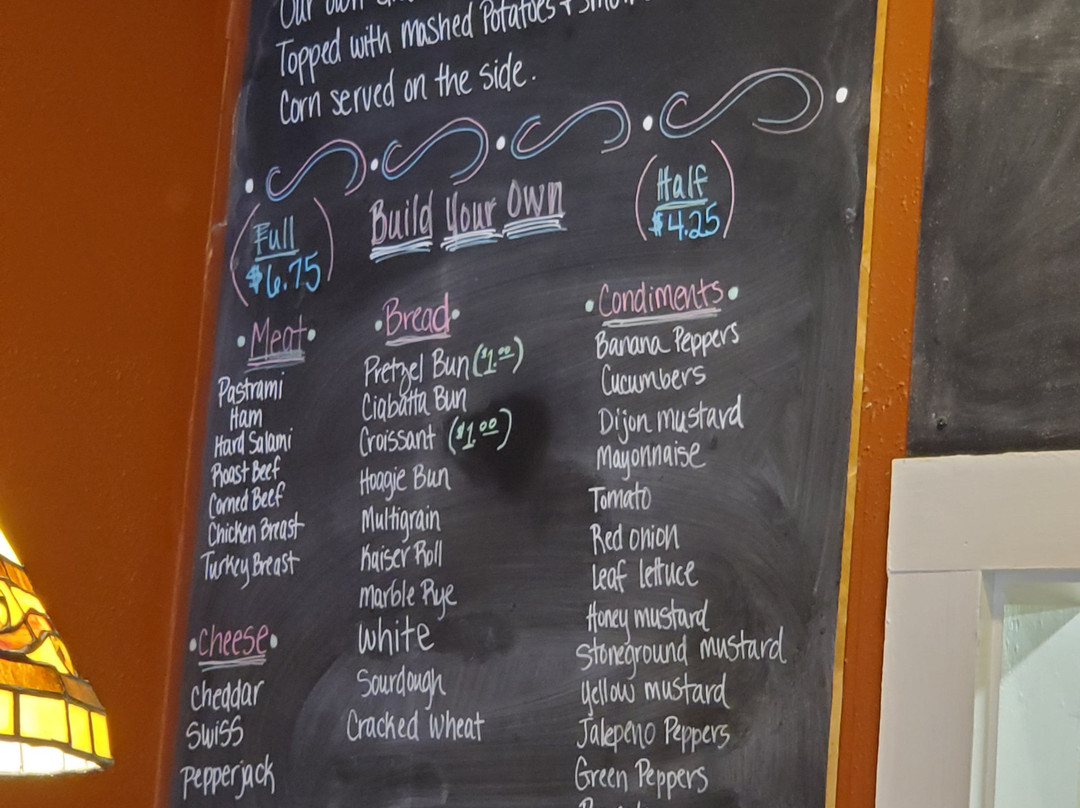 Our own
Topped with mashed Potatoes +
Corn served on the side.
(Full $6.75)
Build Your Own
(Half $4.25)
• Meat •
Pastrami
Ham
Hard Salami
Roast Beef
Corned Beef
Chicken Breast
Turkey Breast
• Cheese •
Cheddar
Swiss
Pepperjack
• Bread •
Pretzel Bun ($1.00)
Ciabatta Bun
Croissant ($1.00)
Hoagie Bun
Multigrain
Kaiser Roll
Marble Rye
White
Sourdough
Cracked Wheat
• Condiments •
Banana Peppers
Cucumbers
Dijon mustard
Mayonnaise
Tomato
Red onion
Leaf lettuce
Honey mustard
Stoneground mustard
Yellow mustard
Jalepeno Peppers
Green Peppers